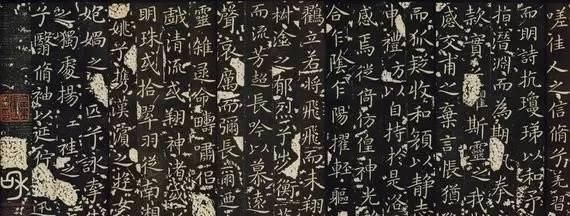 嗟佳人之信脩兮羌習
而明詩抗瓊珶以和予
指潛淵而為期執眷
款實斯靈之我
感交甫之棄言悵猶
而狐疑收和顏以静志
申禮方以自持於是洛
感焉徙倚彷徨神光
合乍陰乍陽擢輕軀
鸖立若將飛飛而未翔
椒塗之郁烈兮步衡
而流芳超長吟以慕遠
聲哀厲而彌長爾乃
靈雜遝命疇嘯侣
戲清流或翔神渚或
明珠或拾翠羽從南湘
姚兮攜漢濱之遊女
妃媧之匹兮詠牽
之獨處揚袿之
兮翳脩袖以延佇